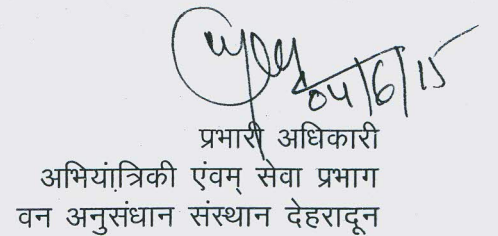 04/6/15
प्रभारी अधिकारी
अभियांत्रिकी एंवम् सेवा प्रभाग
वन अनुसंधान संस्थान देहरादून